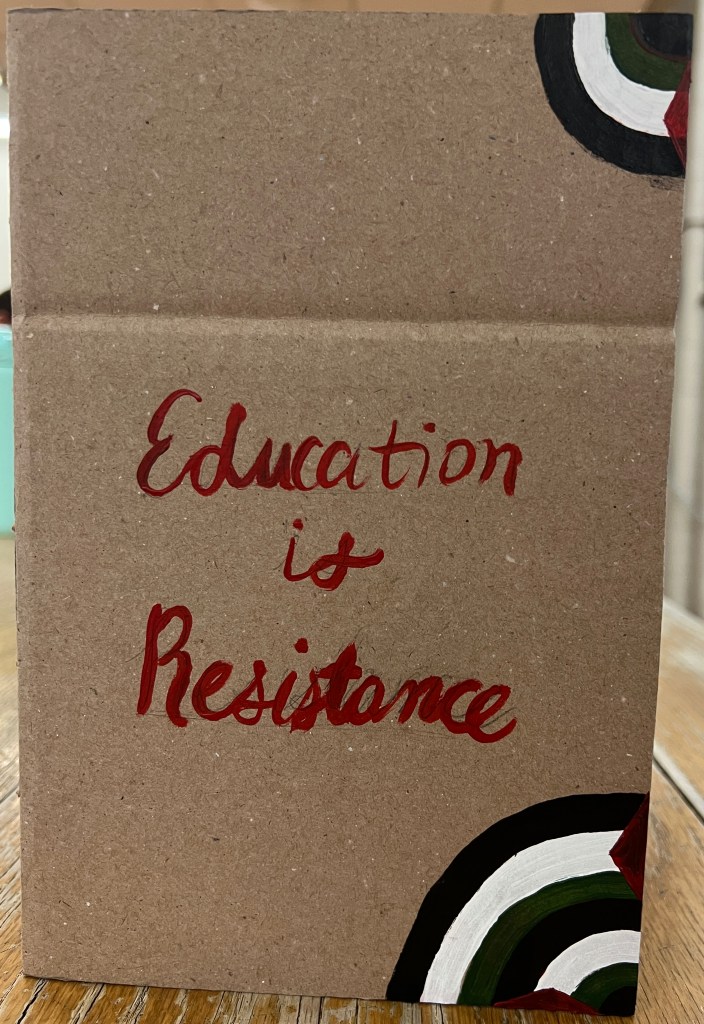 Education
is
Resistance